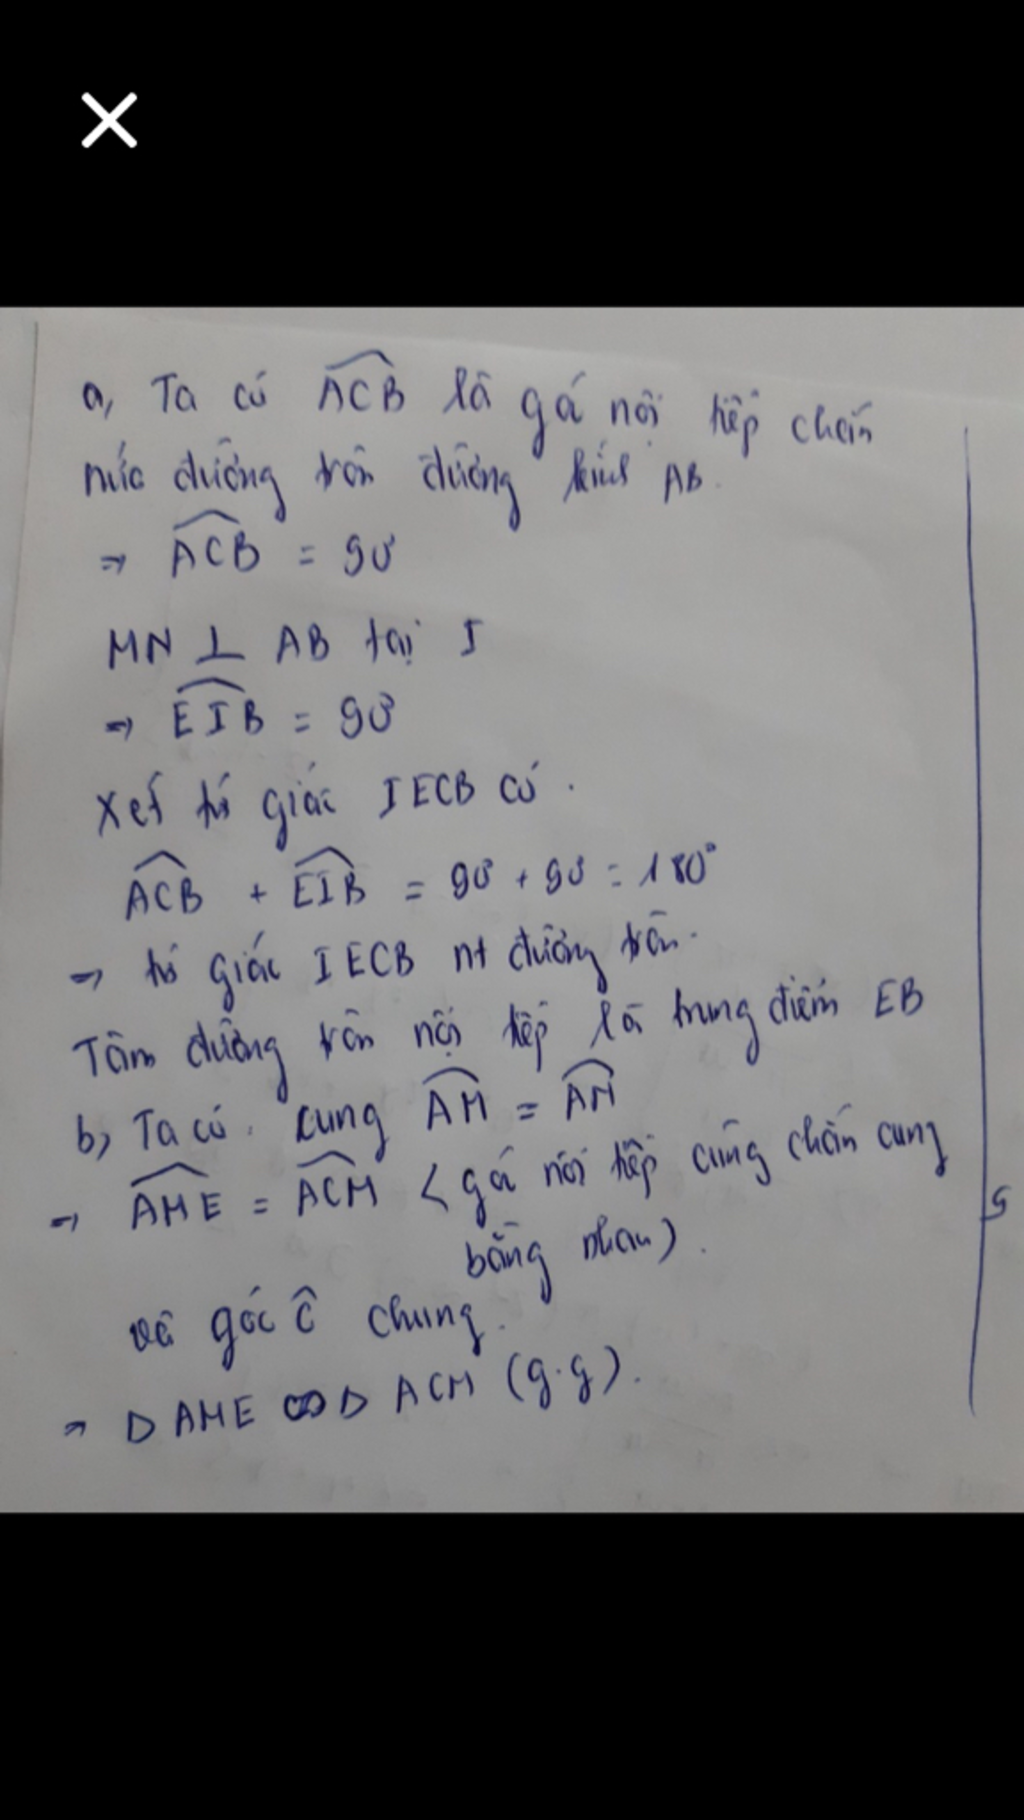 a, Ta có ACB là góc nội tiếp chắn
nửa đường tròn đường kính AB.
⇒ ACB = 90°
MN ⊥ AB tại I
⇒ EIB = 90°
Xét tứ giác IECB có.
ACB + EIB = 90° + 90° = 180°
⇒ tứ giác IECB nt đường tròn.
Tâm đường tròn nội tiếp là trung điểm EB
b, Ta có. cung AM = AM
⇒ AME = ACM < góc nội tiếp cùng chắn cung
bằng nhau).
và góc C chung.
⇒ Δ AME ∽ Δ ACM (g.g).